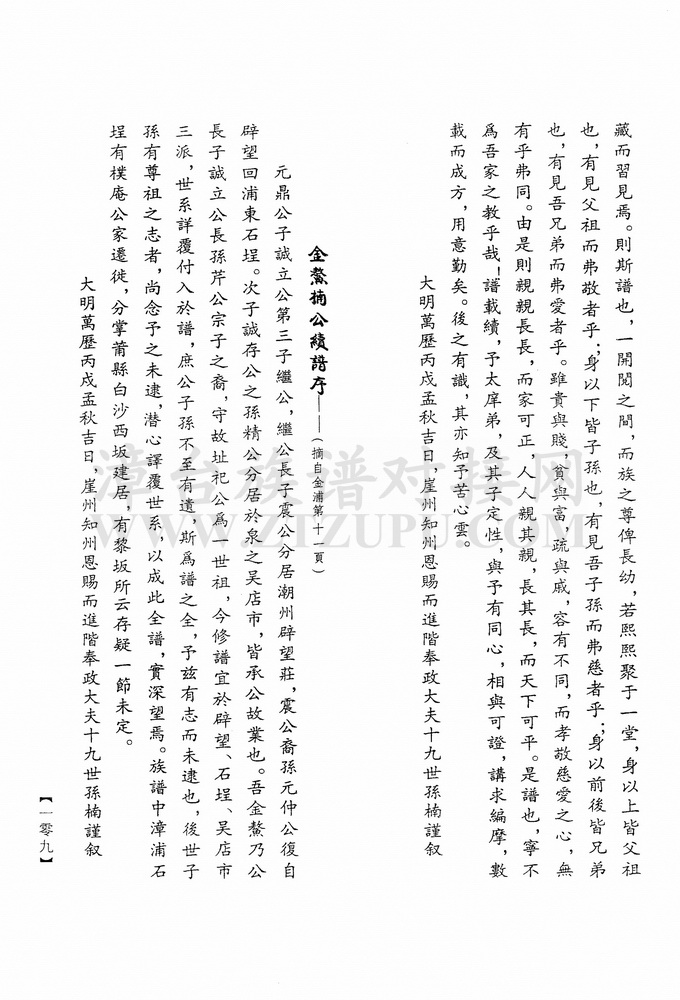 藏而習見焉。則斯譜也，一開閱之間，而族之尊俾長幼，若熙熙聚于一堂，身以上皆父祖
也，有見父祖而弗敬者乎；身以下皆子孫也，有見吾子孫而弗慈者乎；身以前後皆兄弟
也，有見吾兄弟而弗愛者乎。雖貴與賤，貧與富，疏與戚，容有不同，而孝敬慈愛之心，無
有乎弗同。由是則親親長長，而家可正，人人親其親，長其長，而天下可平。是譜也，寧不
爲吾家之教乎哉！譜載續，予太庠弟，及其子定性，與予有同心，相與可證，講求編摩，數
載而成方，用意勤矣。後之有識，其亦知予苦心雲。
大明萬歷丙戌孟秋吉日，崖州知州恩賜而進階奉政大夫十九世孫楠謹叙
金鰲楠公續譜序——（摘自金浦第十一頁）
元鼎公子誠立公第三子繼公，繼公長子震公分居潮州辟望莊，震公裔孫元仲公復自
辟望回浦東石埕。次子誠存公之孫精公分居於泉之吴店市，皆承公故業也。吾金鰲乃公
長子誠立公長孫芹公宗子之裔，守故址祀公爲一世祖，今修譜宜於辟望、石埕、吴店市
三派，世系詳覆付入於譜，庶公子孫不至有遺，斯爲譜之全，予兹有志而未逮也，後世子
孫有尊祖之志者，尚念予之未逮，潜心譯覆世系，以成此全譜，實深望焉。族譜中漳浦石
埕有樸庵公家遷徙，分掌莆縣白沙西坂建居，有黎坂所云存疑一節未定。
大明萬歷丙戌孟秋吉日，崖州知州恩賜而進階奉政大夫十九世孫楠謹叙
【一零九】
漳台族譜对接网
WWW.ZTZUPU.COM